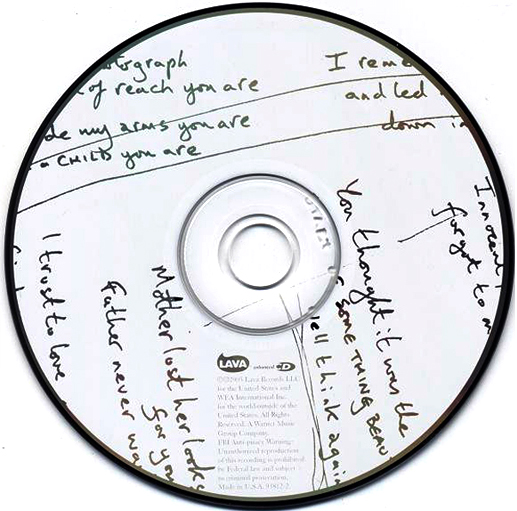 tograph
of reach you are
de my arms you are
a CHILD you are
I reme
and led
down in
Innocent
forgot to m
You thought it was the
of SOMETHING BEAU
ell think again
I trust to love
Mother lost her looks
for you
Father never wa
LAVA
enhanced CD
©℗2005 Lava Records LLC
for the United States and
WEA International Inc.
for the world outside of the
United States. All Rights
Reserved. A Warner Music
Group Company.
FBI Anti-piracy Warning:
Unauthorized reproduction
of this recording is prohibited
by Federal law and subject
to criminal prosecution.
Made in U.S.A. 93812-2